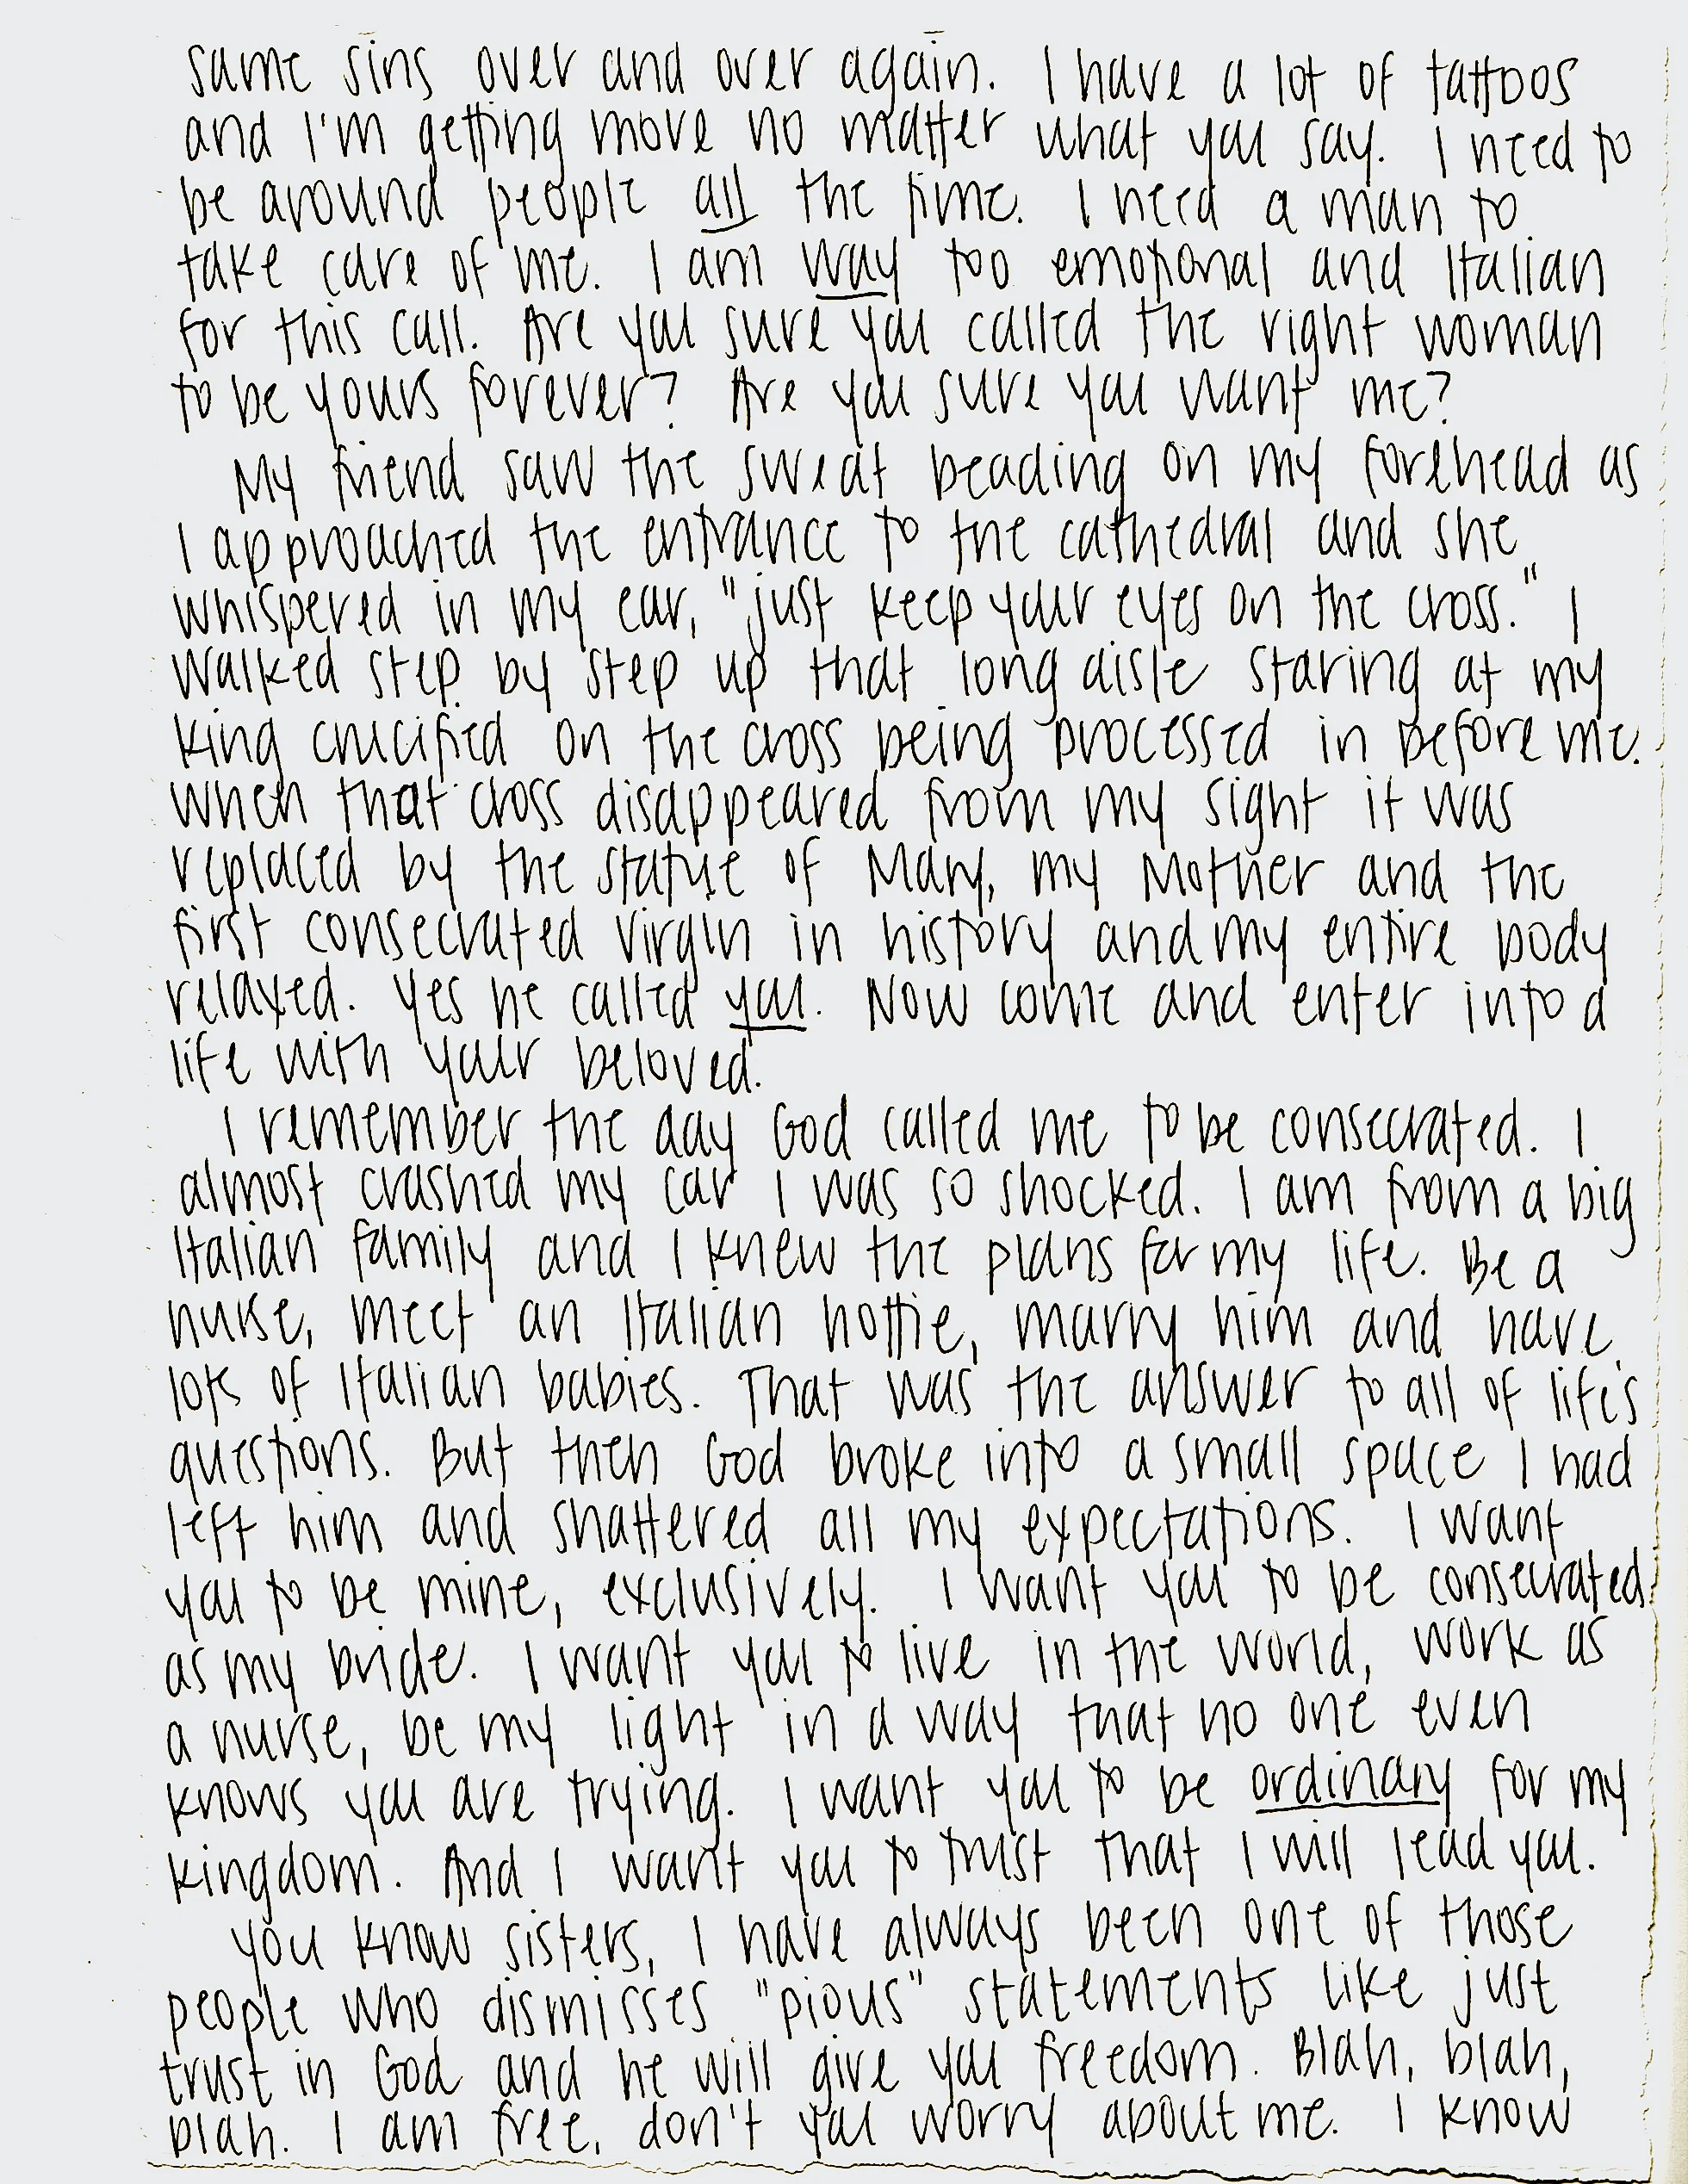 same sins over and over again. I have a lot of tattoos
and I'm getting more no matter what you say. I need to
be around people all the time. I need a man to
take care of me. I am way too emotional and Italian
for this call. Are you sure you called the right woman
to be yours forever? Are you sure you want me?
My friend saw the sweat beading on my forehead as
I approached the entrance to the cathedral and she
whispered in my ear, "just keep your eyes on the cross." I
walked step by step up that long aisle staring at my
king crucified on the cross being processed in before me.
When that cross disappeared from my sight it was
replaced by the statue of Mary, my Mother and the
first consecrated virgin in history and my entire body
relaxed. Yes he called you. Now come and enter into a
life with your beloved.
I remember the day God called me to be consecrated. I
almost crashed my car I was so shocked. I am from a big
Italian family and I knew the plans for my life. Be a
nurse, meet an Italian hottie, marry him and have
lots of Italian babies. That was the answer to all of life's
questions. But then God broke into a small space I had
left him and shattered all my expectations. I want
you to be mine, exclusively. I want you to be consecrated
as my bride. I want you to live in the world, work as
a nurse, be my light in a way that no one even
knows you are trying. I want you to be ordinary for my
kingdom. And I want you to trust that I will lead you.
You know sisters, I have always been one of those
people who dismisses "pious" statements like just
trust in God and he will give you freedom. Blah, blah,
blah. I am free, don't you worry about me. I know